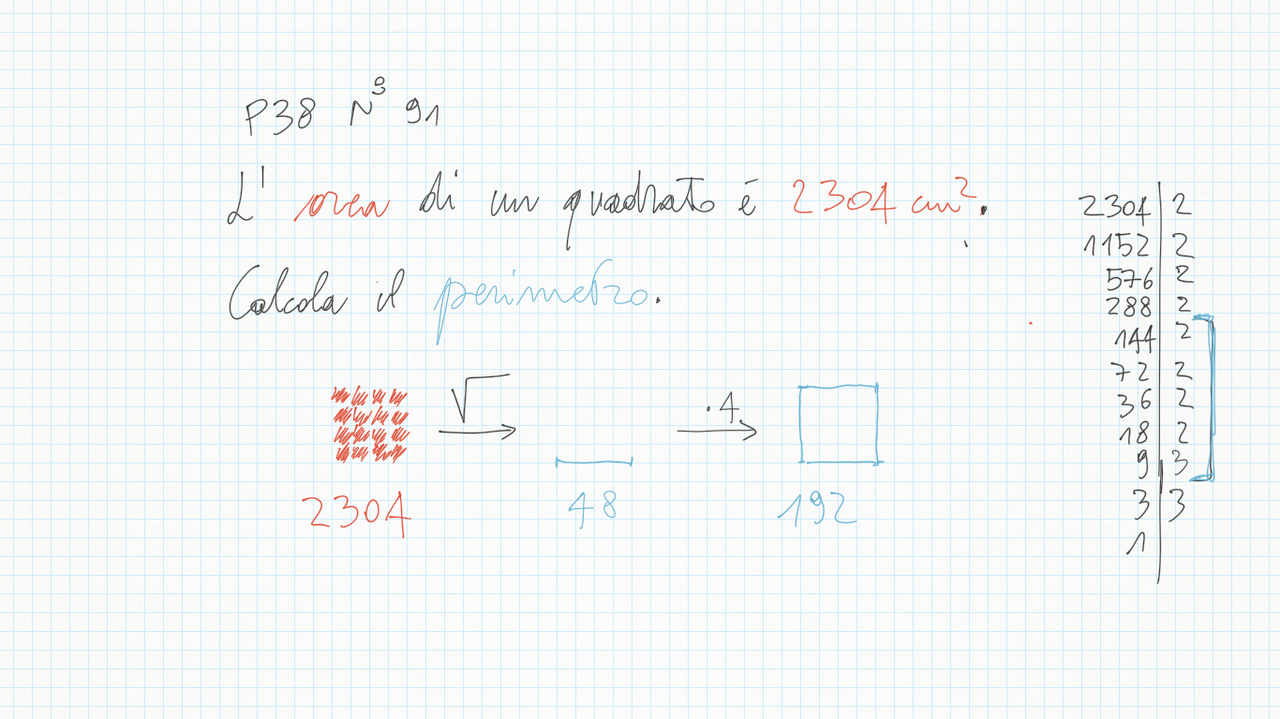 P38 N° 91
L'area di un quadrato è 2304 cm².
Calcola il perimetro.
√
.4
2304
48
192
2304 | 2
1152 | 2
576 | 2
288 | 2
144 | 2
72 | 2
36 | 2
18 | 2
9 | 3
3 | 3
1